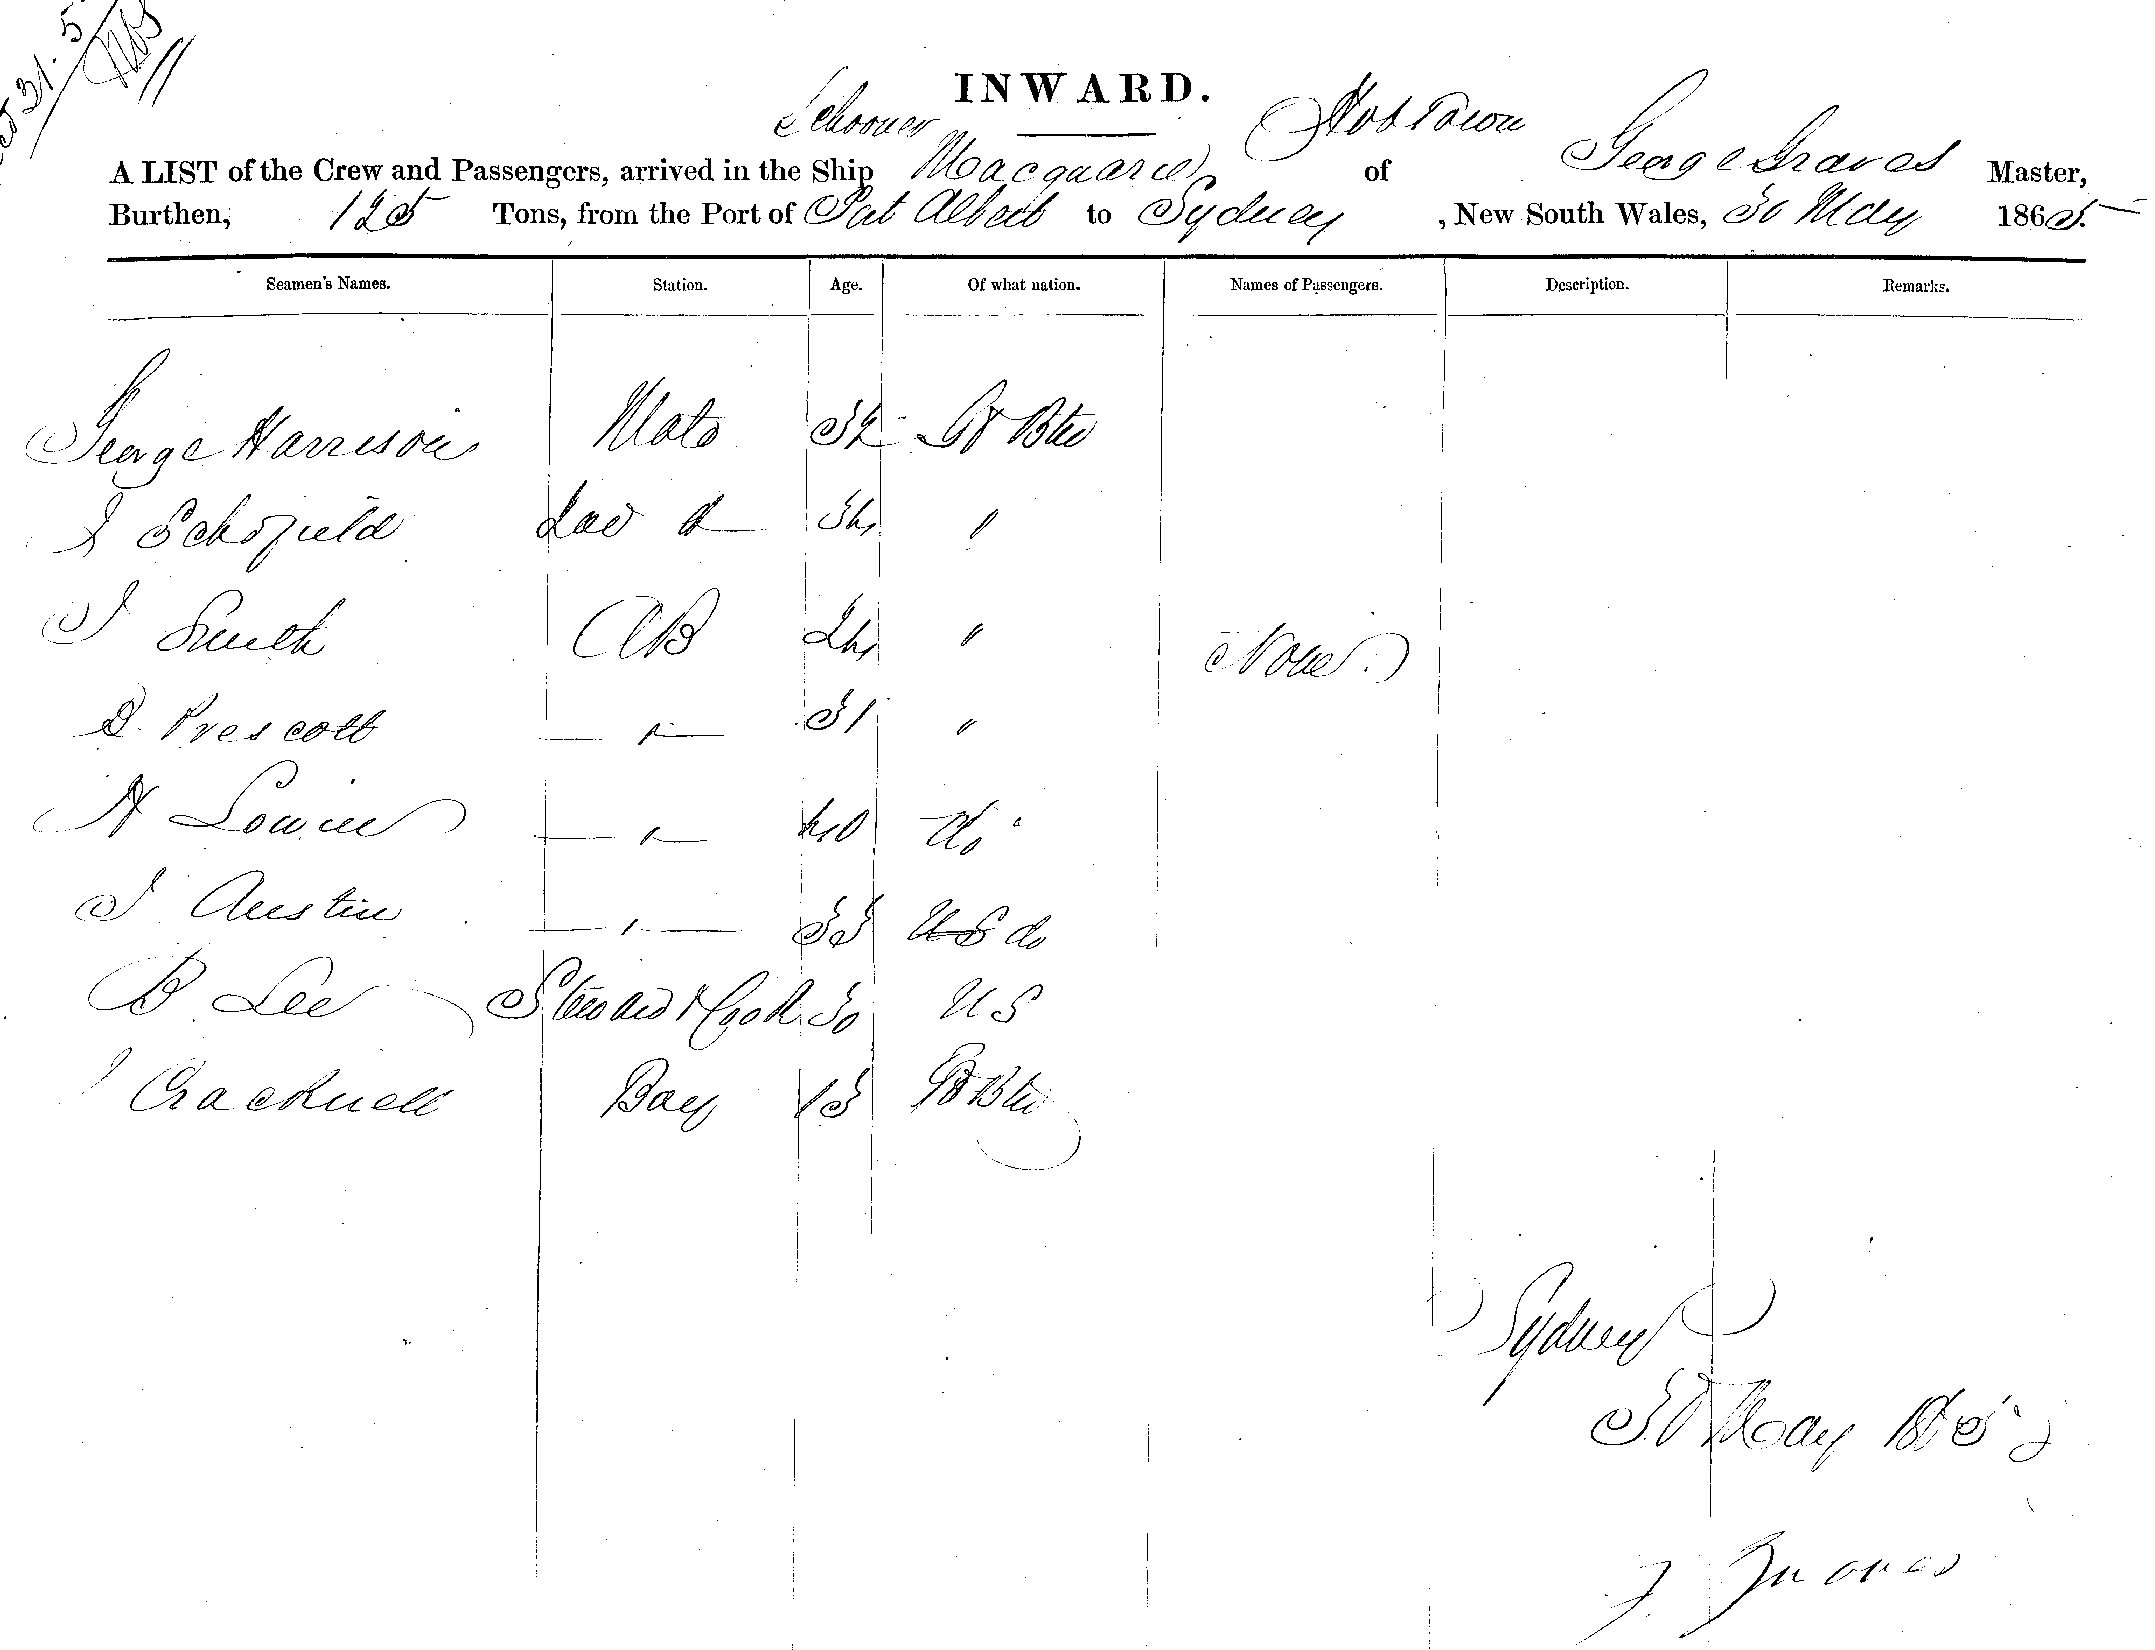 31.5
INWARD.
Schooner
A LIST of the Crew and Passengers, arrived in the Ship Macquarie of HobTown George Graves Master,
Burthen, 125 Tons, from the Port of Port Albert to Sydney , New South Wales, 30 May 1865.
Seamen's Names. Station. Age. Of what nation. Names of Passengers. Description. Remarks.
George Harrison Mate Gt Btn
J Schofield 34 "
J Smith AB 24 "
D. Prescott — " — 31 "
H Lowrie — " — 40 do
J Austin — " — 33 US do
B Lee Steward & Cook 30 US
J Cracknell Boy 13 Gt Btn
None.
Sydney
30 May 1865
G. Graves